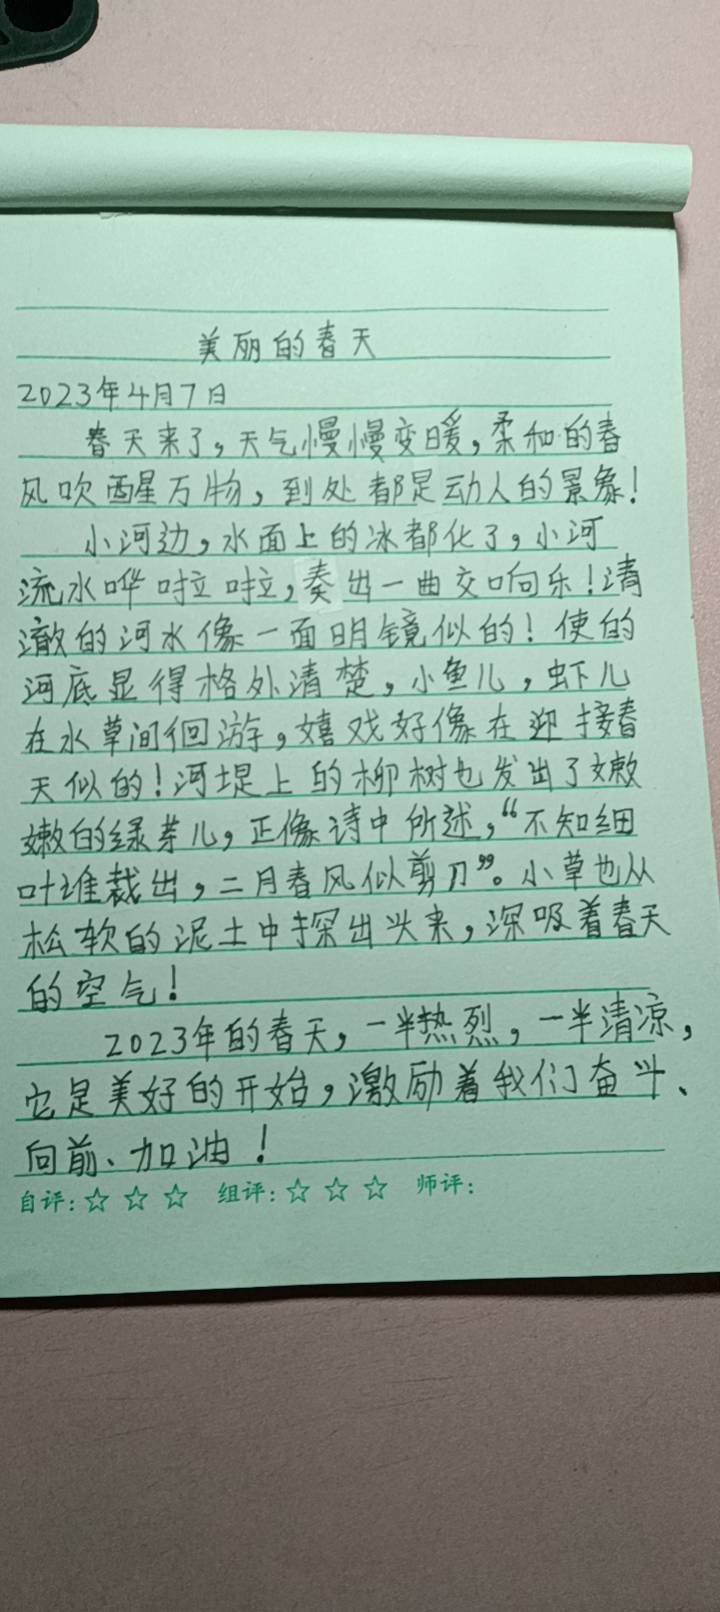 美丽的春天
2023年4月7日
春天来了,天气慢慢变暖,柔和的春
风吹醒万物,到处都是动人的景象!
小河边,水面上的冰都化了,小河
流水哗啦啦,奏出一曲交响乐!清
澈的河水像一面明镜似的!使的
河底显得格外清楚,小鱼儿,虾儿
在水草间徊游,嬉戏好像在迎接春
天似的!河堤上的柳树也发出了嫩
嫩的绿芽儿,正像诗中所述,“不知细
叶谁裁出,二月春风似剪刀”。小草也从
松软的泥土中探出头来,深吸着春天
的空气!
2023年的春天,一半热烈,一半清凉,
它是美好的开始,激励着我们奋斗、
向前、加油!
自评:☆ ☆ ☆ 组评:☆ ☆ ☆ 师评: